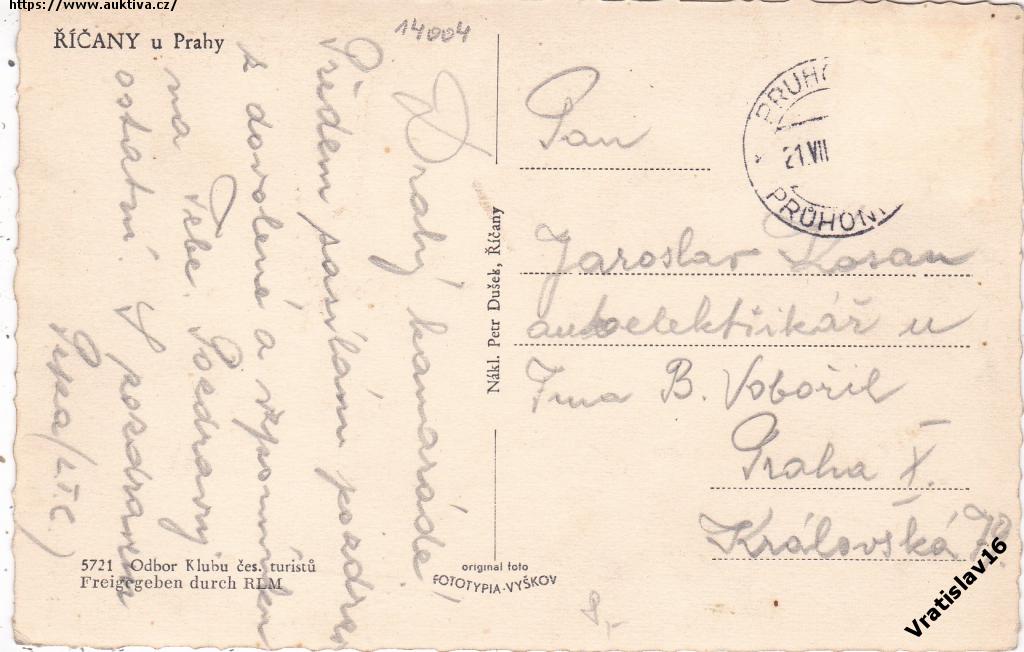 https://www.auktiva.cz/
ŘÍČANY u Prahy
14004
Drahý kamaráde!
Předem zasílám pozdrav
z dovolené a vzpomínku
na Tebe. Pozdravuj
ostatní. S pozdravem
Pepa
PRŮHO
21.VII
PRŮHON
Pan
Jaroslav Kosan
autoelektřikář u
Fma B. Vobořil
Praha X.
Královská
Nákl. Petr Dušek, Říčany
5721 Odbor Klubu čes. turistů
Freigegeben durch RLM
original foto
FOTOTYPIA-VYŠKOV
8,-
Vratislav16